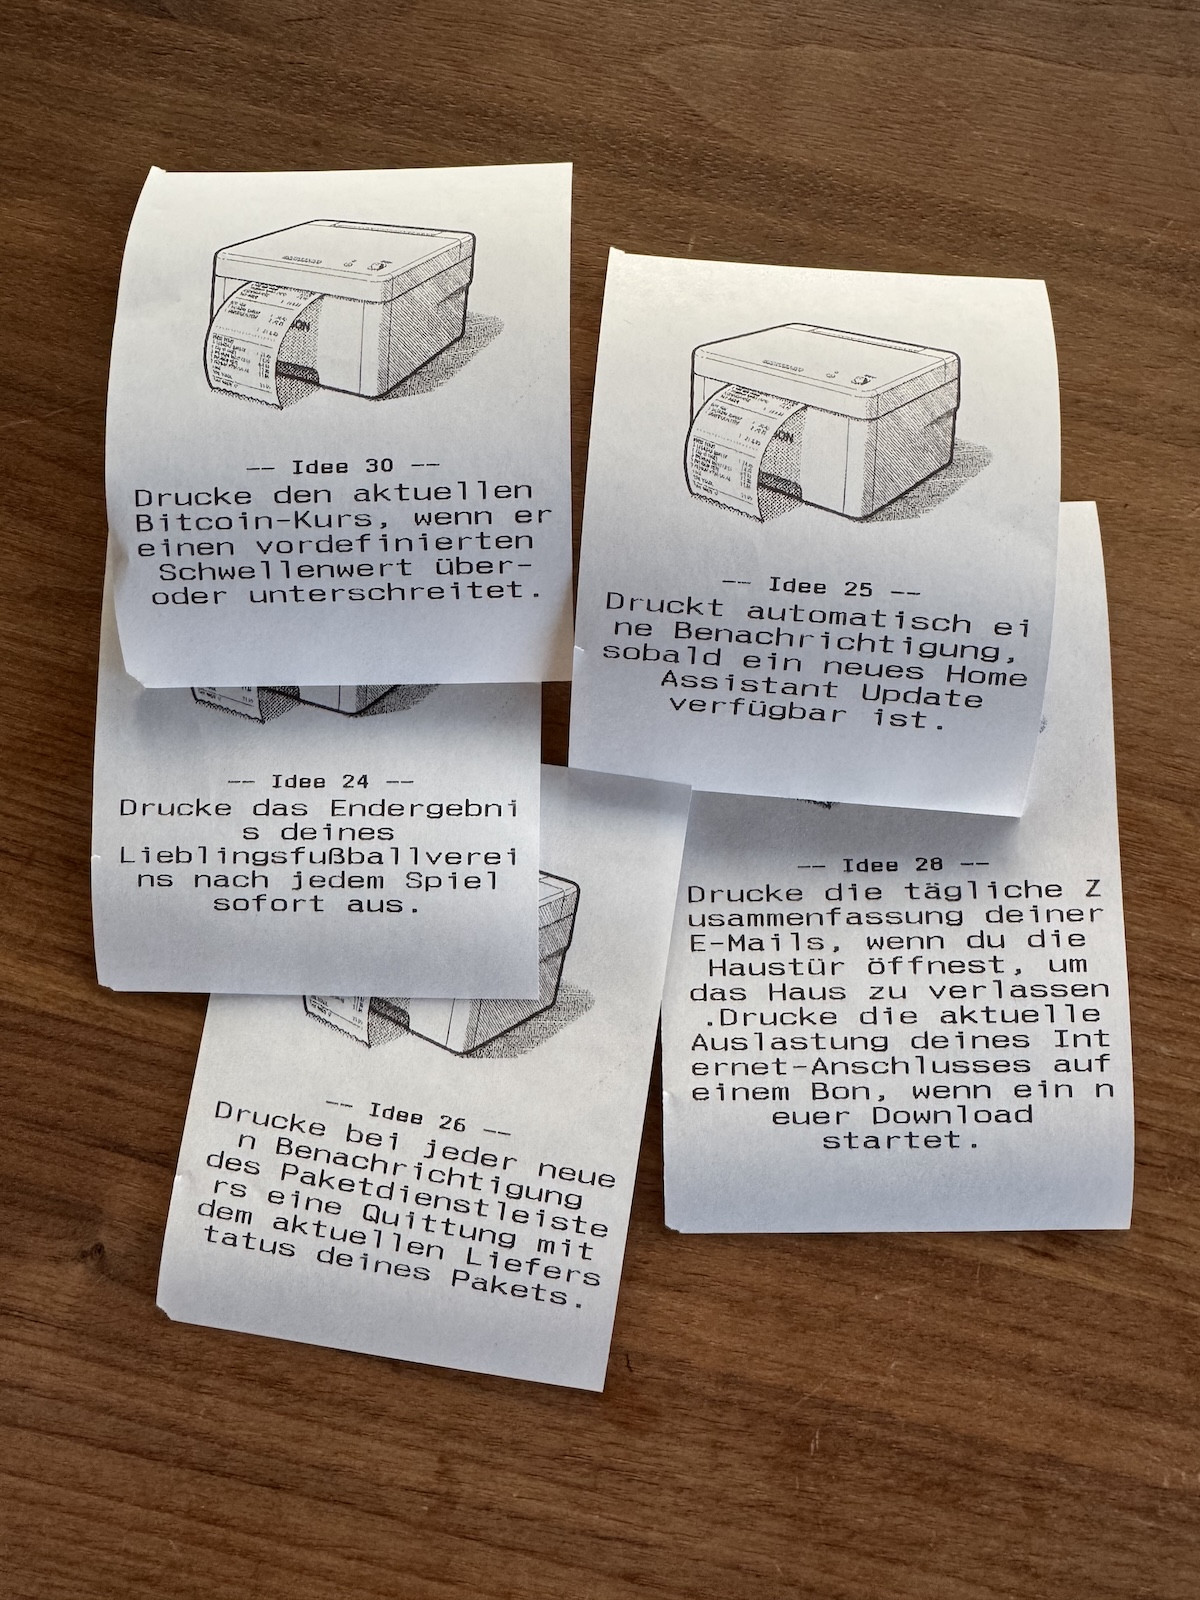 -- Idee 30 --
Drucke den aktuellen
Bitcoin-Kurs, wenn er
einen vordefinierten
Schwellenwert über-
oder unterschreitet.
-- Idee 25 --
Druckt automatisch ei
ne Benachrichtigung,
sobald ein neues Home
Assistant Update
verfügbar ist.
-- Idee 24 --
Drucke das Endergebni
s deines
Lieblingsfußballverei
ns nach jedem Spiel
sofort aus.
-- Idee 28 --
Drucke die tägliche Z
usammenfassung deiner
E-Mails, wenn du die
Haustür öffnest, um
das Haus zu verlassen
.Drucke die aktuelle
Auslastung deines Int
ernet-Anschlusses auf
einem Bon, wenn ein n
euer Download
startet.
-- Idee 26 --
Drucke bei jeder neue
n Benachrichtigung
des Paketdienstleiste
rs eine Quittung mit
dem aktuellen Liefers
tatus deines Pakets.